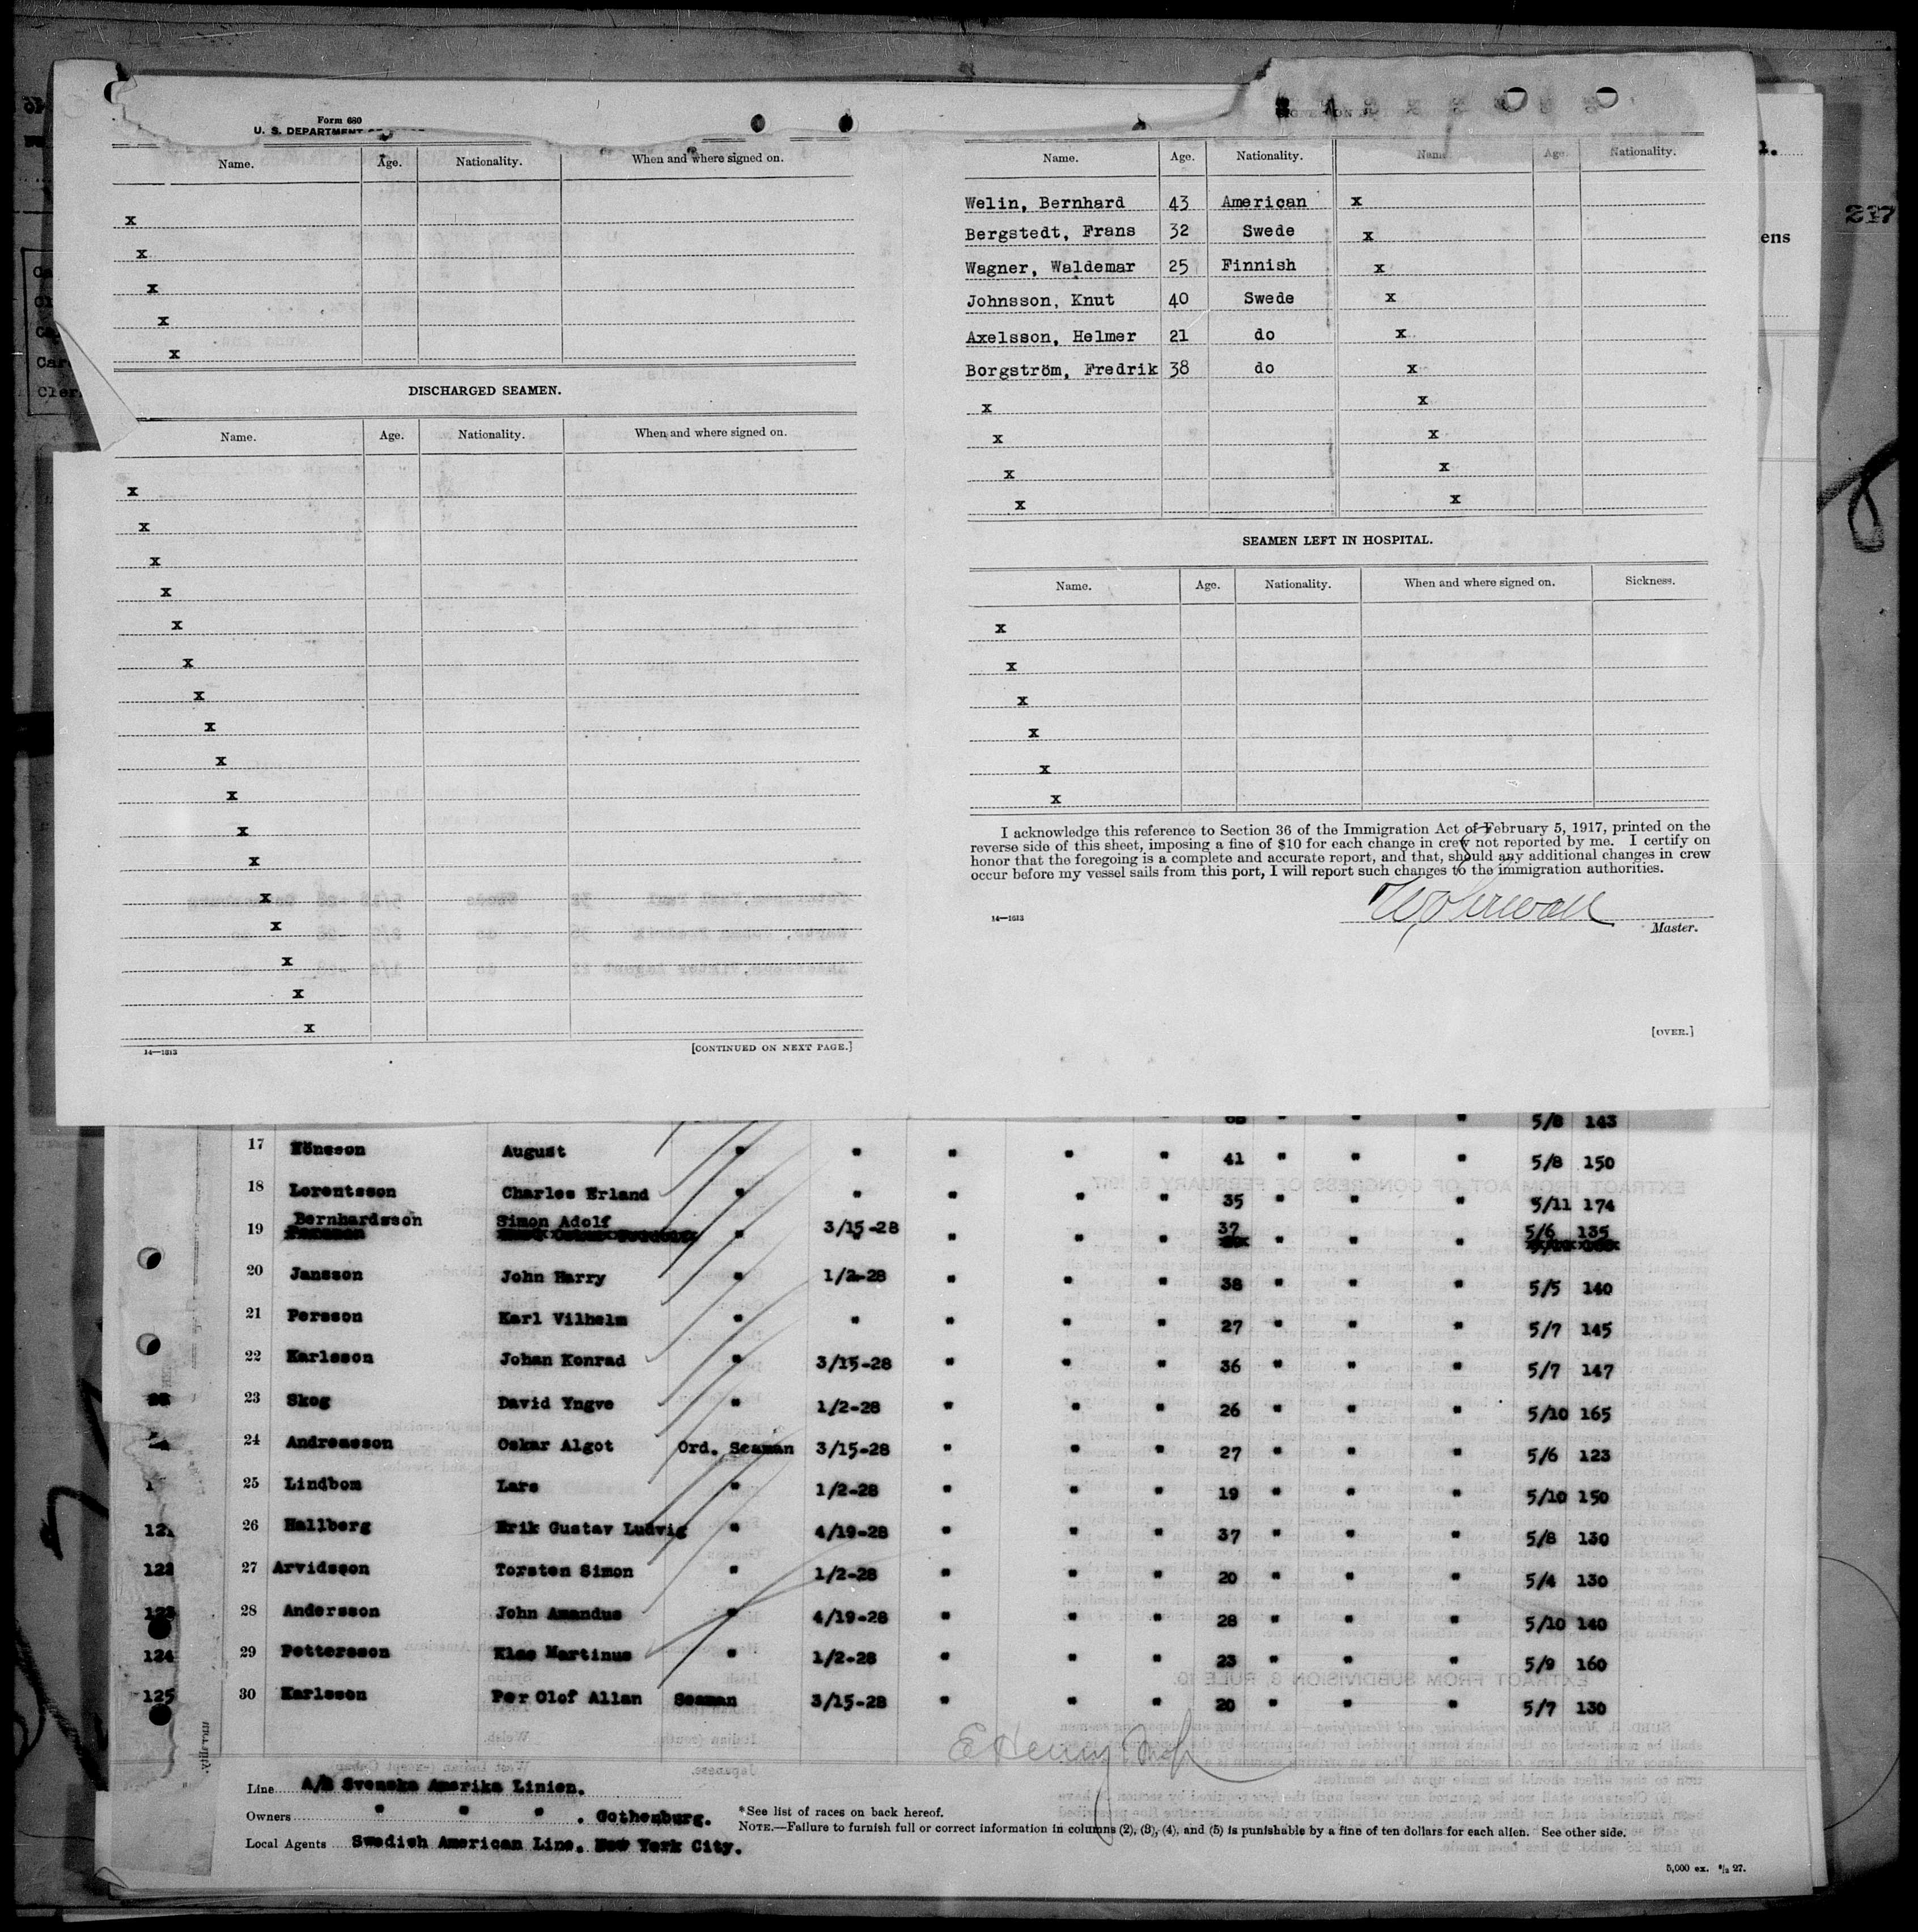 Form 680
U. S. DEPARTMENT
Name. Age. Nationality. When and where signed on.
x
x
x
x
x
DISCHARGED SEAMEN.
Name. Age. Nationality. When and where signed on.
x
x
x
x
x
x
x
x
x
x
x
x
x
x
x
x
x
14—1613
[CONTINUED ON NEXT PAGE.]
Name. Age. Nationality. Name. Age. Nationality.
Welin, Bernhard 43 American x
Bergstedt, Frans 32 Swede x
Wagner, Waldemar 25 Finnish x
Johnsson, Knut 40 Swede x
Axelsson, Helmer 21 do x
Borgström, Fredrik 38 do x
x x
x x
x x
x x
SEAMEN LEFT IN HOSPITAL.
Name. Age. Nationality. When and where signed on. Sickness.
x
x
x
x
x
x
I acknowledge this reference to Section 36 of the Immigration Act of February 5, 1917, printed on the
reverse side of this sheet, imposing a fine of $10 for each change in crew not reported by me. I certify on
honor that the foregoing is a complete and accurate report, and that, should any additional changes in crew
occur before my vessel sails from this port, I will report such changes to the immigration authorities.
14—1613
Master.
[OVER.]
ens
237
5/8 143
17 Hönsson August " " " " " 41 " " " 5/8 150
18 Lorentsson Charles Erland " " " " " 35 " " " 5/11 174
19 Bernhardsson Simon Adolf " 3/15-28 " " " 37 " " " 5/6 135
20 Jansson John Harry " 1/2-28 " " " 38 " " " 5/5 140
21 Persson Karl Vilhelm " " " " " 27 " " " 5/7 145
22 Karlsson Johan Konrad " 3/15-28 " " " 36 " " " 5/7 147
23 Skog David Yngve " 1/2-28 " " " 26 " " " 5/10 165
24 Andreasson Oskar Algot Ord. Seaman 3/15-28 " " " 27 " " " 5/6 123
25 Lindbom Lars " 1/2-28 " " " 19 " " " 5/10 150
26 Hallberg Erik Gustav Ludvig " 4/19-28 " " " 37 " " " 5/8 130
122 27 Arvidsson Torsten Simon " 1/2-28 " " " 20 " " " 5/4 130
123 28 Andersson John Amandus " 4/19-28 " " " 28 " " " 5/10 140
124 29 Pettersson Klas Martinus " 1/2-28 " " " 23 " " " 5/9 160
125 30 Karlsson Per Olof Allan Seaman 3/15-28 " " " 20 " " " 5/7 130
Line A/B Svenska Amerika Linien.
Owners " " " . Gothenburg.
Local Agents Swedish American Line. New York City.
*See list of races on back hereof.
NOTE.—Failure to furnish full or correct information in columns (2), (3), (4), and (5) is punishable by a fine of ten dollars for each alien. See other side.
5,000 ex. 8/2 27.